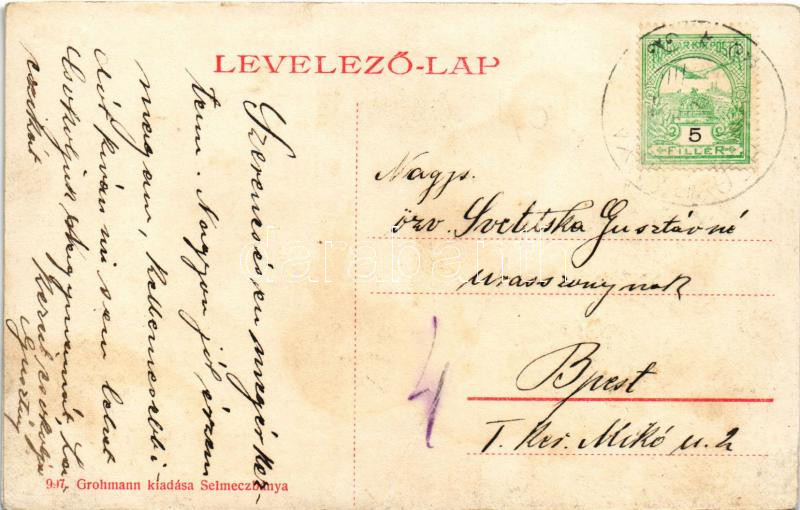 LEVELEZŐ-LAP
MAGYAR KIR. POSTA
5
FILLÉR
Nagys.
özv. Svetitska Gusztávné
urasszonynak
Bpest
I. ker. Mikó u. 2
4
Szerencsésen megérkez-
tem. Nagyon jól érzem
magam, kellemesebb i-
dőt kívánni sem lehet
Csókolják
kezeit csókolja
Gusztáv
997. Grohmann kiadása Selmeczbánya
darabanth